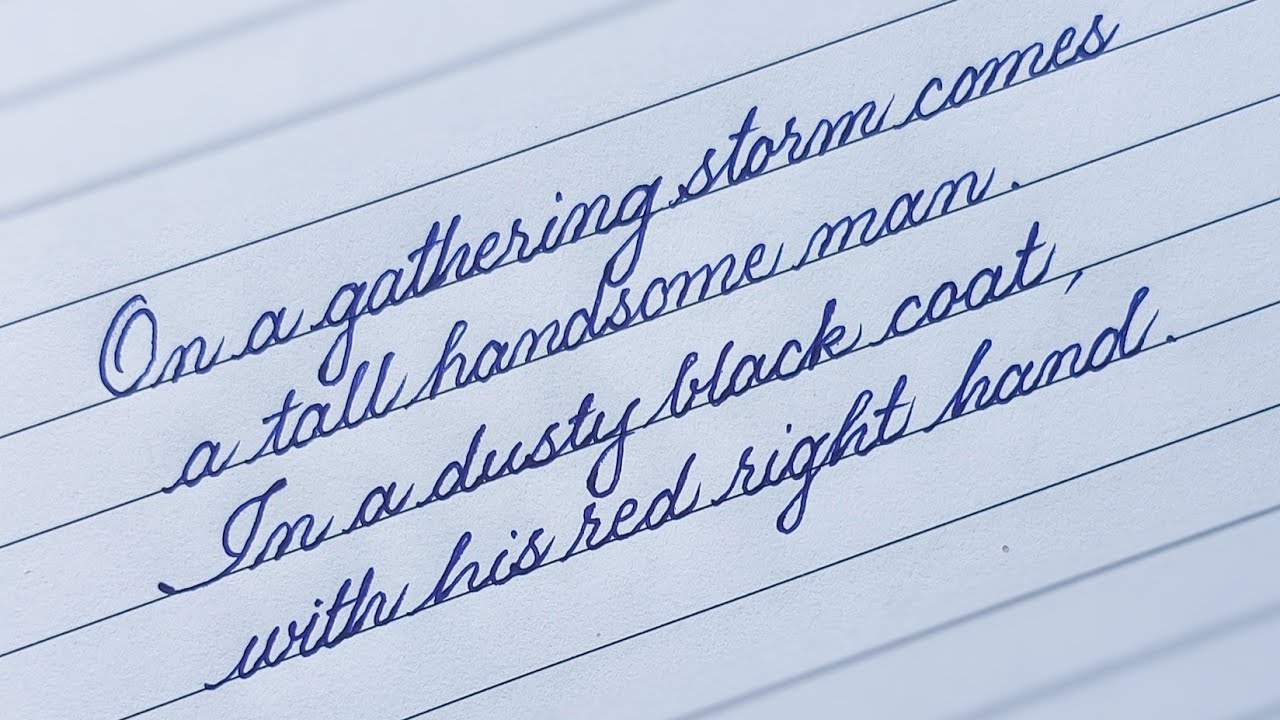 On a gathering storm comes
a tall handsome man.
In a dusty black coat,
with his red right hand.